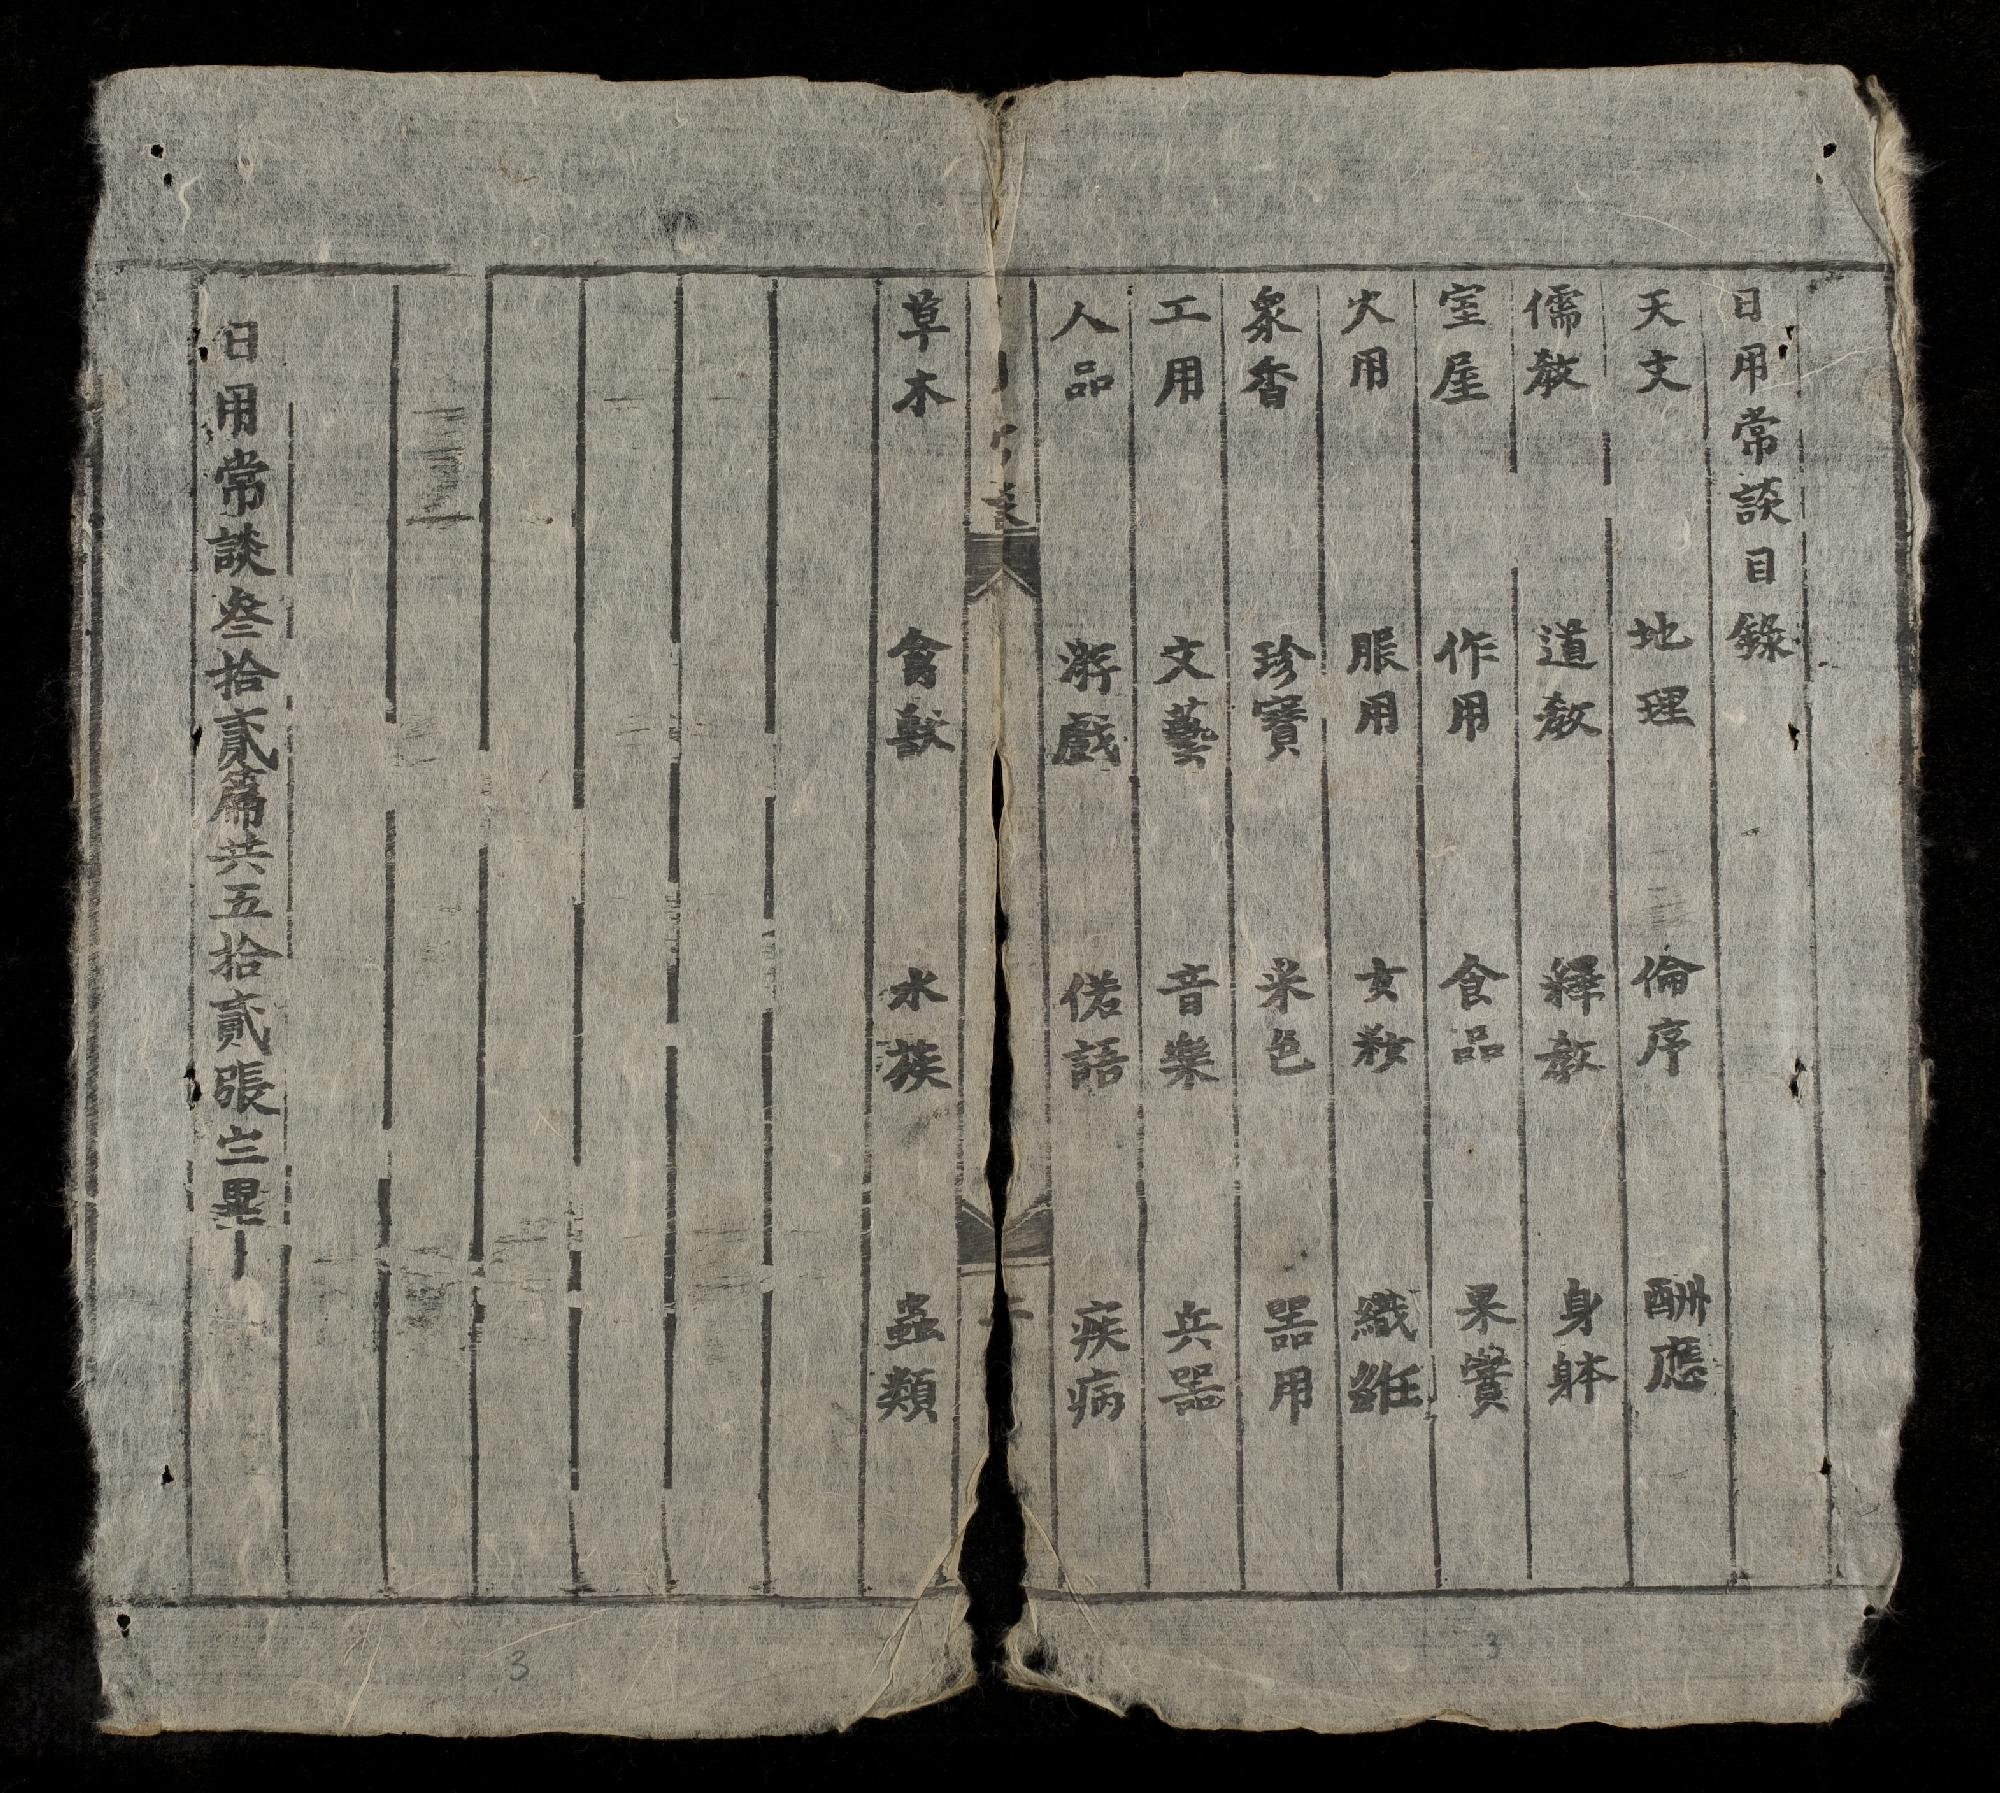 日用常談目錄
天文 地理 倫序 酬應
儒教 道教 釋教 身体
室屋 作用 食品 果實
火用 服用 女粧 織絍
眾香 珍寶 采色 器用
工用 文藝 音樂 兵器
人品 游戲 偌語 疾病
常談
草木 禽獸 水族 蟲類
日用常談叄拾貳篇共五拾貳張
3
3